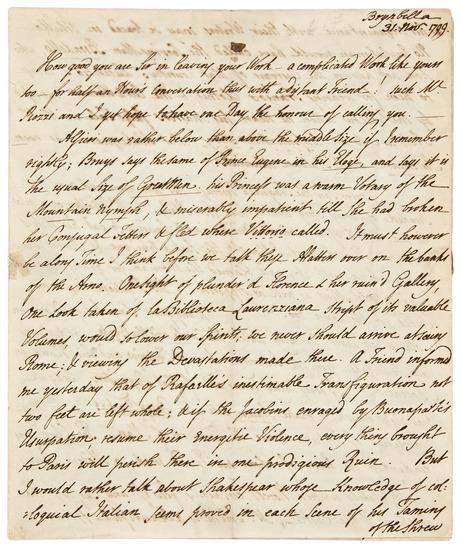 Brynbella
31. Nov: 1799.
How good you are Sir in leaving your Work – a complicated Work like yours
too – for half an Hour's Conversation thus with a distant Friend: such Mr
Piozzi and I yet hope to have one Day the honour of calling you.
Alfieri was rather below than above the middle size if I remember
rightly; Bruys says the same of Prince Eugene in his Eloge, and says it is
the usual Size of Great Men. his Princess was a warm Votary of the
Mountain Nymph, & miserably impatient till She had broken
her Conjugal Fetters & fled where Vittorio called. It must however
be a long Time I think before we talk these Matters over on the banks
of the Arno. One sight of plunder'd Florence & her ruin'd Gallery,
One Look taken of la Biblioteca Laurenziana stript of its valuable
Volumes, would so lower our Spirits; we never should arrive at seeing
Rome: & viewing the Devastations made there. A Friend informed
me yesterday that of Rafaelle's inestimable Transfiguration not
two feet are left whole; & if the Jacobins enraged by Buonaparte's
Usurpation, resume their Energetic Violence, every thing brought
to Paris will perish there in one prodigious Ruin. But
I would rather talk about Shakespear whose Knowledge of col=
=loquial Italian seems proved in each Scene of his Taming
of the Shrew